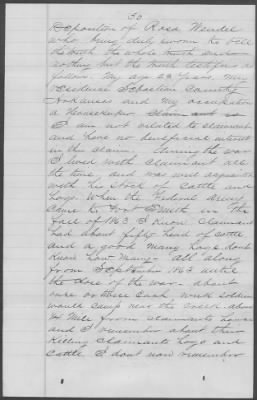 30
Deposition of Rosa Wendel
who being duly sworn to tell
the truth the whole truth and
nothing but the truth testifies as
follows. My age 22 years. My
residence Sebastian County
Arkansas and my occupation
a Housekeeper.
I am not related to claimant
and have no beneficial interest
in this claim. During the war
I lived with claimant all
the time, and was well acquainted
with his stock of cattle and
hogs. When the Federal army
came to Fort Smith in the
fall of 1863 I know claimant
had about fifty head of cattle
and a good many hogs dont
know how many. All along
from September 1863 until
the close of the war about
once or twice each week soldiers
would camp near the creek about
1/4 Mile from claimants house
and I remember about their
killing claimants hogs and
cattle. I dont now remember